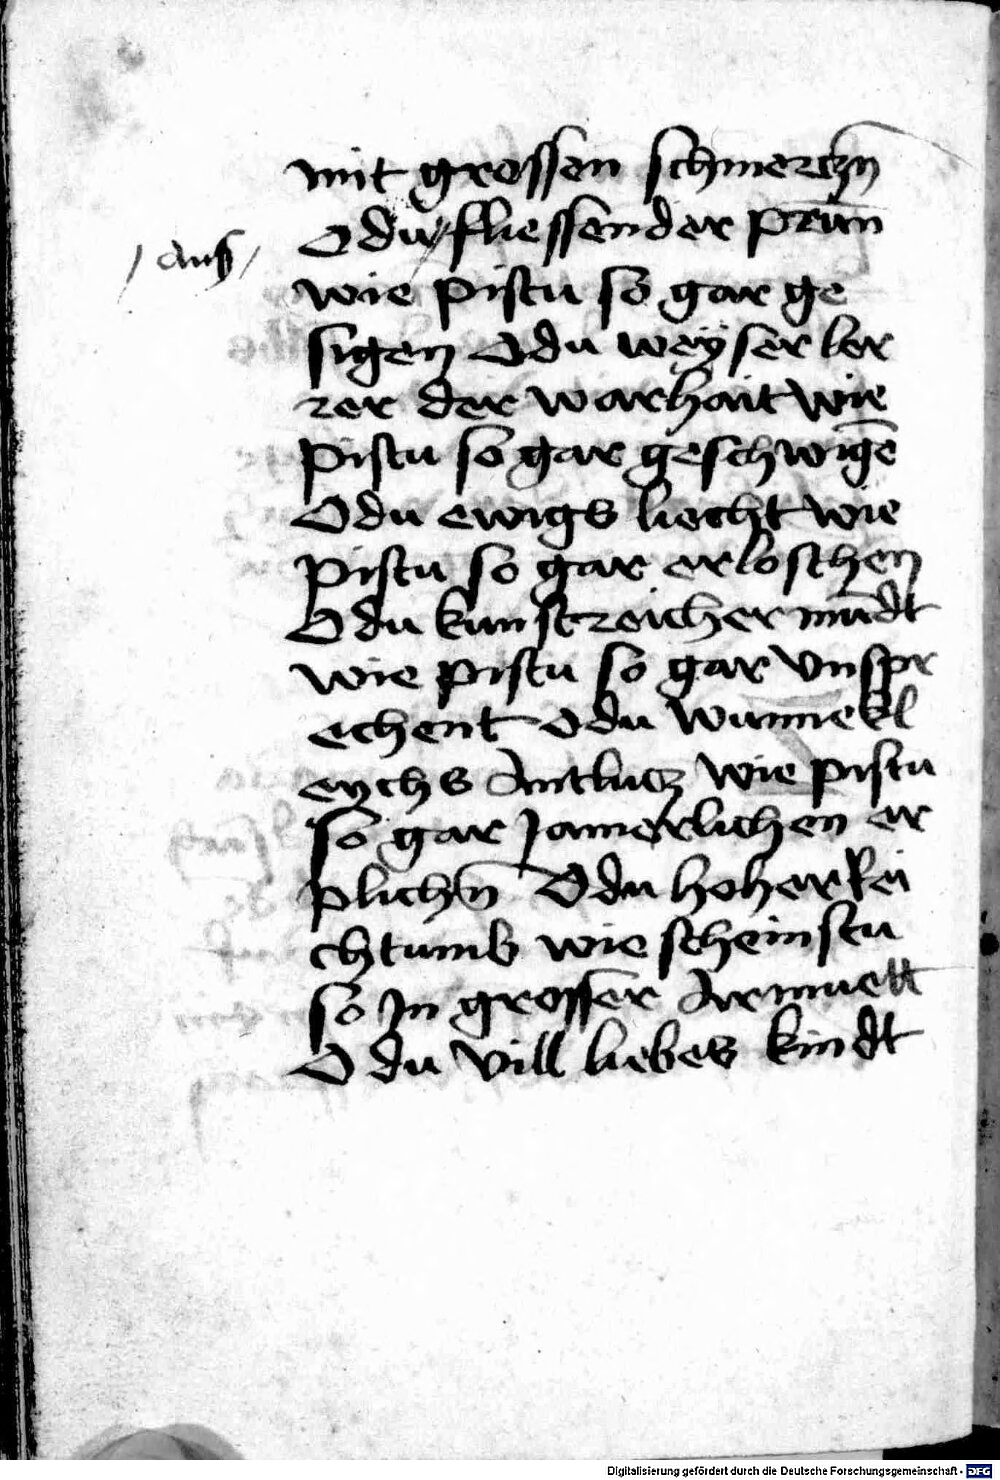 mit grossen schmerczn
O du fliessender prūn
/ aus /
wie pistu so gar ge
sigen O du weÿser ler
rer der warhait wie
pistu so gar geschwigē
O du ewigs liecht wie
pistu so gar erloschen
O du kunstreicher mūdt
wie pistu so gar vnspr
echent O du wunnekl
eychs Antlucz wie pistu
so gar Jamerlichen er
plichn O du hoher Rei
chtumb wie scheinstu
so In grosser Armuett
O du vill liebes kindt
Digitalisierung gefördert durch die Deutsche Forschungsgemeinschaft - DFG